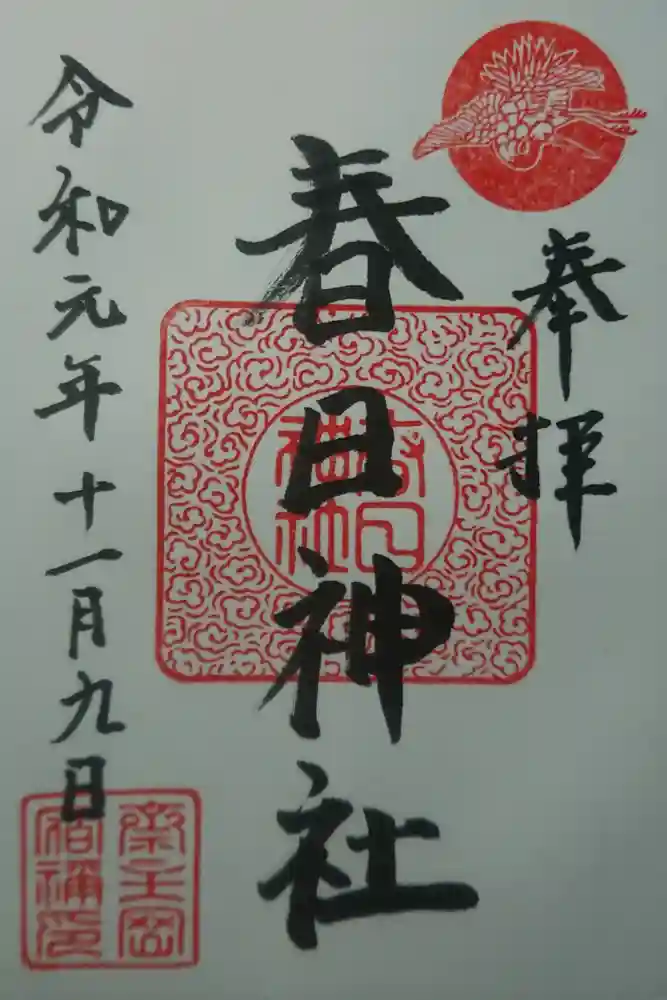 奉拝
春日神社
令和元年十一月九日
春日
神社